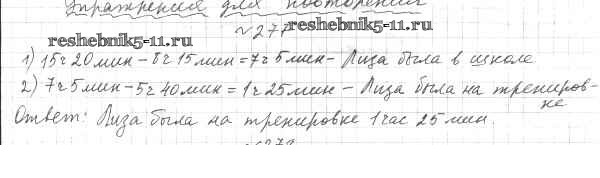 Упражнения для повторения
№277
reshebnik5-11.ru
reshebnik5-11.ru
1) 15ч 20мин – 8ч 15мин = 7ч 5мин – Лиза была в школе
2) 7ч 5мин – 5ч 40мин = 1ч 25мин – Лиза была на трениров-
ке
Ответ: Лиза была на тренировке 1час 25 мин.